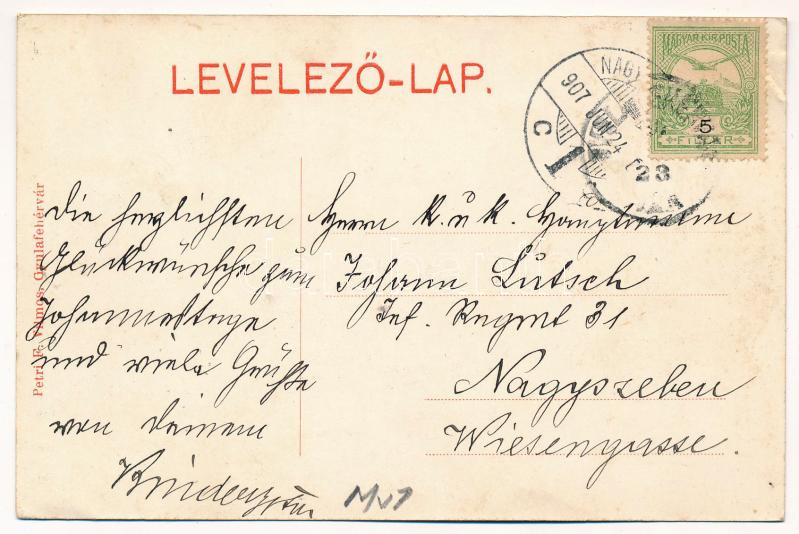 LEVELEZŐ-LAP.
MAGYAR KIR. POSTA
5
FILLÉR
NAGY
907 JUN 24
C 1
23
Petri F. Vilmos, Gyulafehérvár
die herzlichsten
Glückwünsche zum
Johannestage
und viele Grüße
von deinem
Herrn k. u k. Hauptmann
Johann Lutsch
Inf. Regmt 31
Nagyszeben
Wiesengasse.